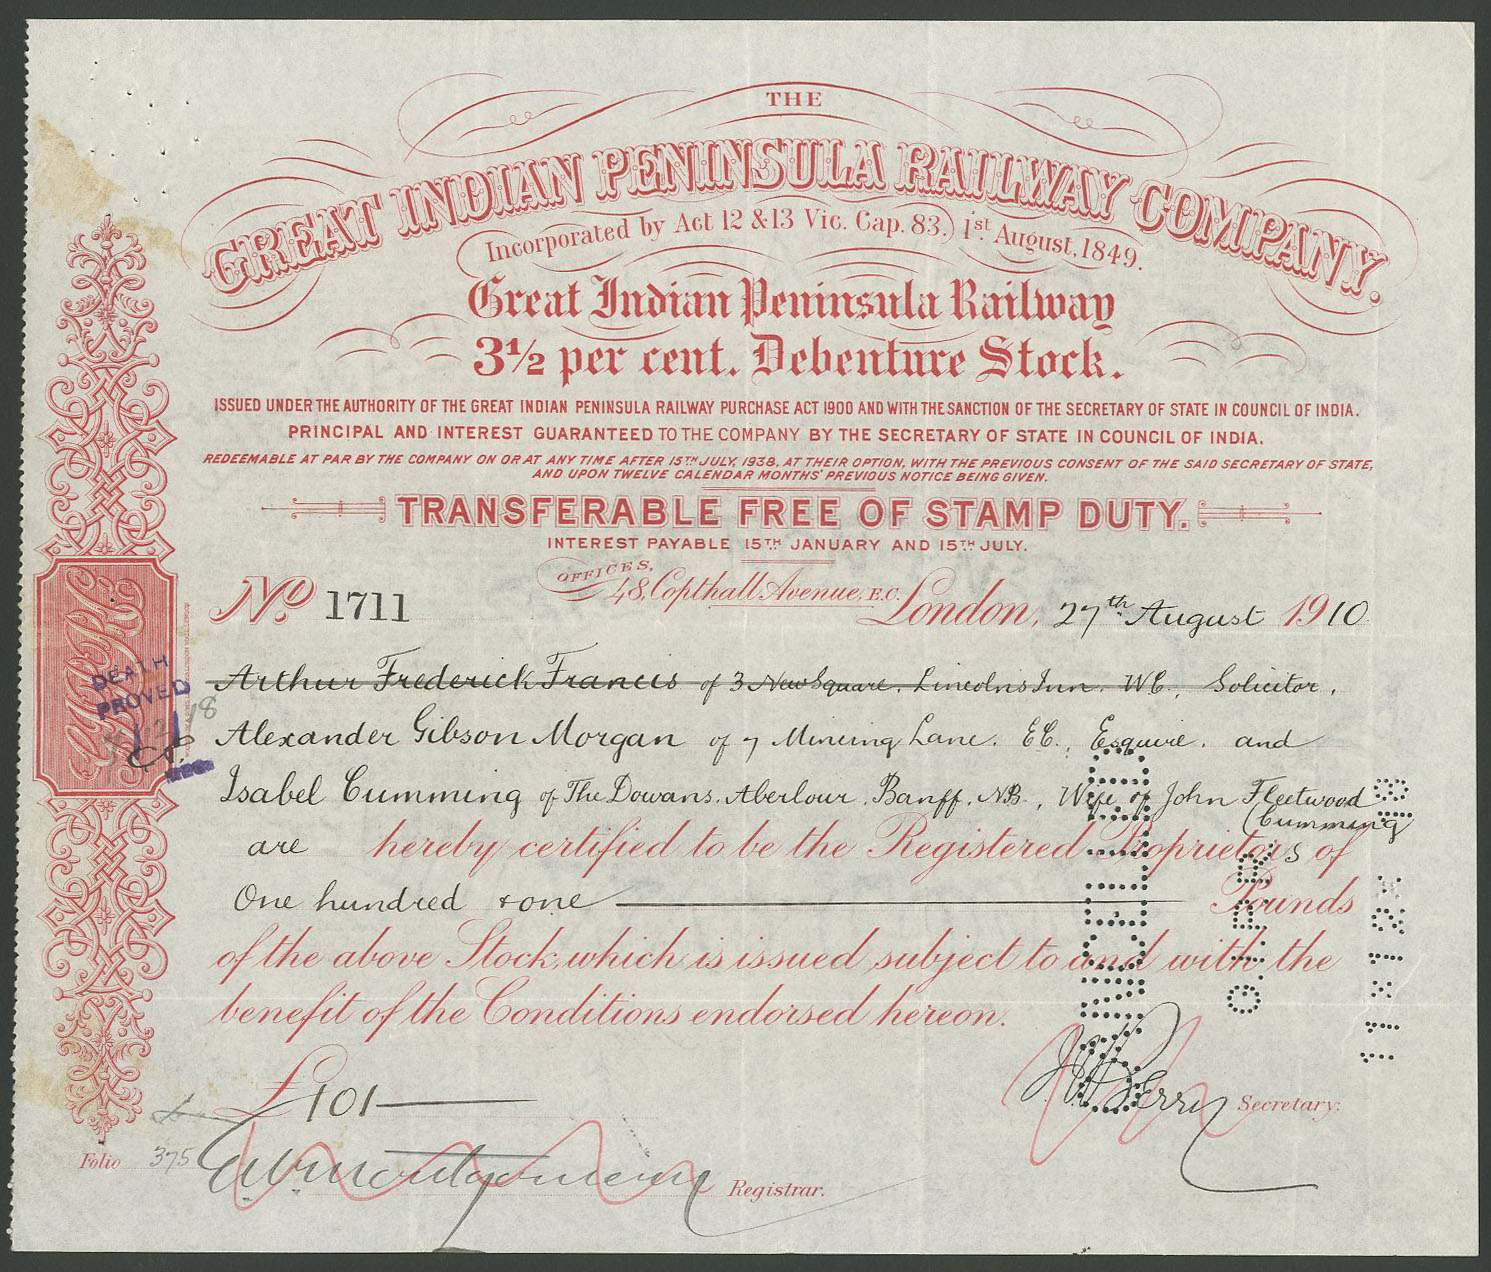 THE
GREAT INDIAN PENINSULA RAILWAY COMPANY.
Incorporated by Act 12 & 13 Vic. Cap. 83.) 1st. August, 1849.
Great Indian Peninsula Railway
3½ per cent. Debenture Stock.
ISSUED UNDER THE AUTHORITY OF THE GREAT INDIAN PENINSULA RAILWAY PURCHASE ACT 1900 AND WITH THE SANCTION OF THE SECRETARY OF STATE IN COUNCIL OF INDIA.
PRINCIPAL AND INTEREST GUARANTEED TO THE COMPANY BY THE SECRETARY OF STATE IN COUNCIL OF INDIA.
REDEEMABLE AT PAR BY THE COMPANY ON OR AT ANY TIME AFTER 15TH JULY, 1938, AT THEIR OPTION, WITH THE PREVIOUS CONSENT OF THE SAID SECRETARY OF STATE,
AND UPON TWELVE CALENDAR MONTHS' PREVIOUS NOTICE BEING GIVEN.
TRANSFERABLE FREE OF STAMP DUTY.
INTEREST PAYABLE 15TH JANUARY AND 15TH JULY.
OFFICES, 48, Copthall Avenue, E.C.
No. 1711 London, 27th August 1910
Arthur Frederick Francis of 3 New Square, Lincolns Inn. WC., Solicitor,
Alexander Gibson Morgan of 7 Mincing Lane. EC., Esquire. and
Isabel Cumming of The Dowans, Aberlour, Banff, NB., Wife of John Fleetwood
(Cumming
are hereby certified to be the Registered Proprietors of
One hundred & one Pounds
of the above Stock, which is issued subject to and with the
benefit of the Conditions endorsed hereon.
£101
J. Berry Secretary.
Folio 375 Montgomery Registrar.
DEATH
PROVED
CANCELLED
G.I.P.R.
11 12 18